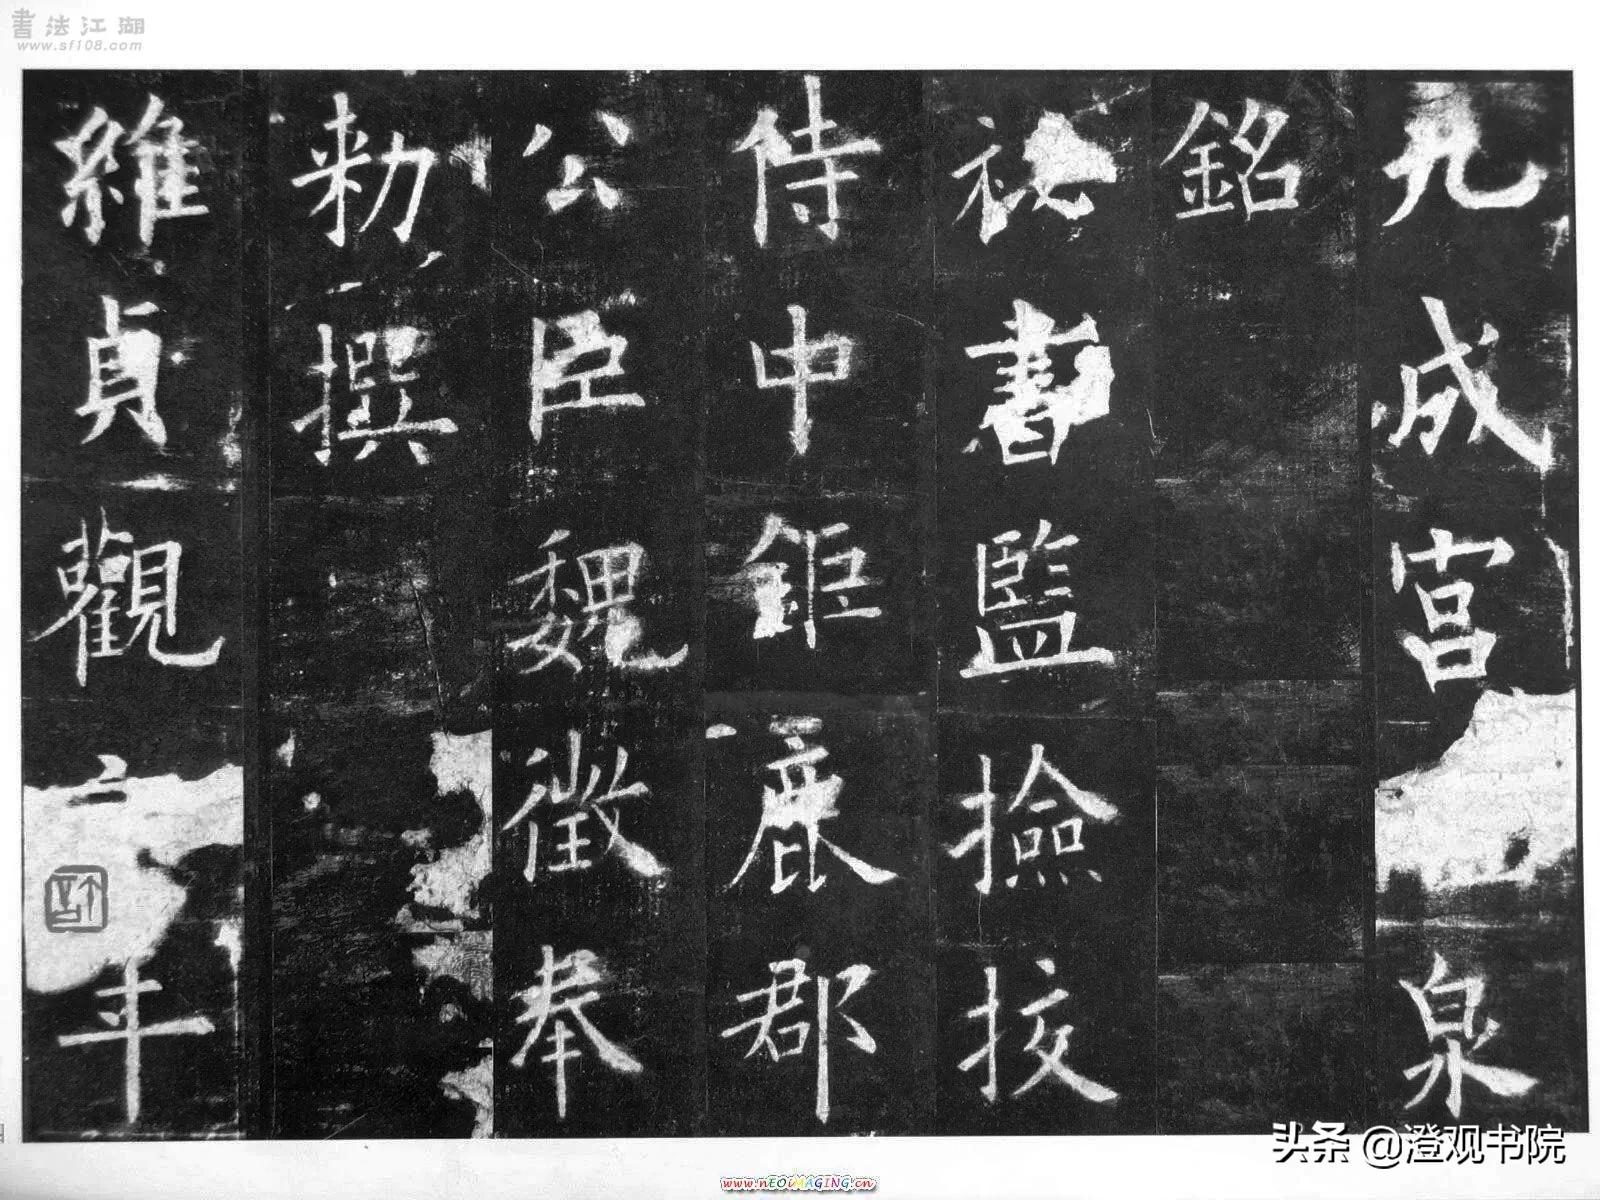 書法江湖
www.sf108.com
九成宫泉
銘
祕書監撿挍
侍中鉅鹿郡
公臣魏徵奉
勑撰
維貞觀六年
头条 @澄观书院
www.nEOiMAGiNG.cn